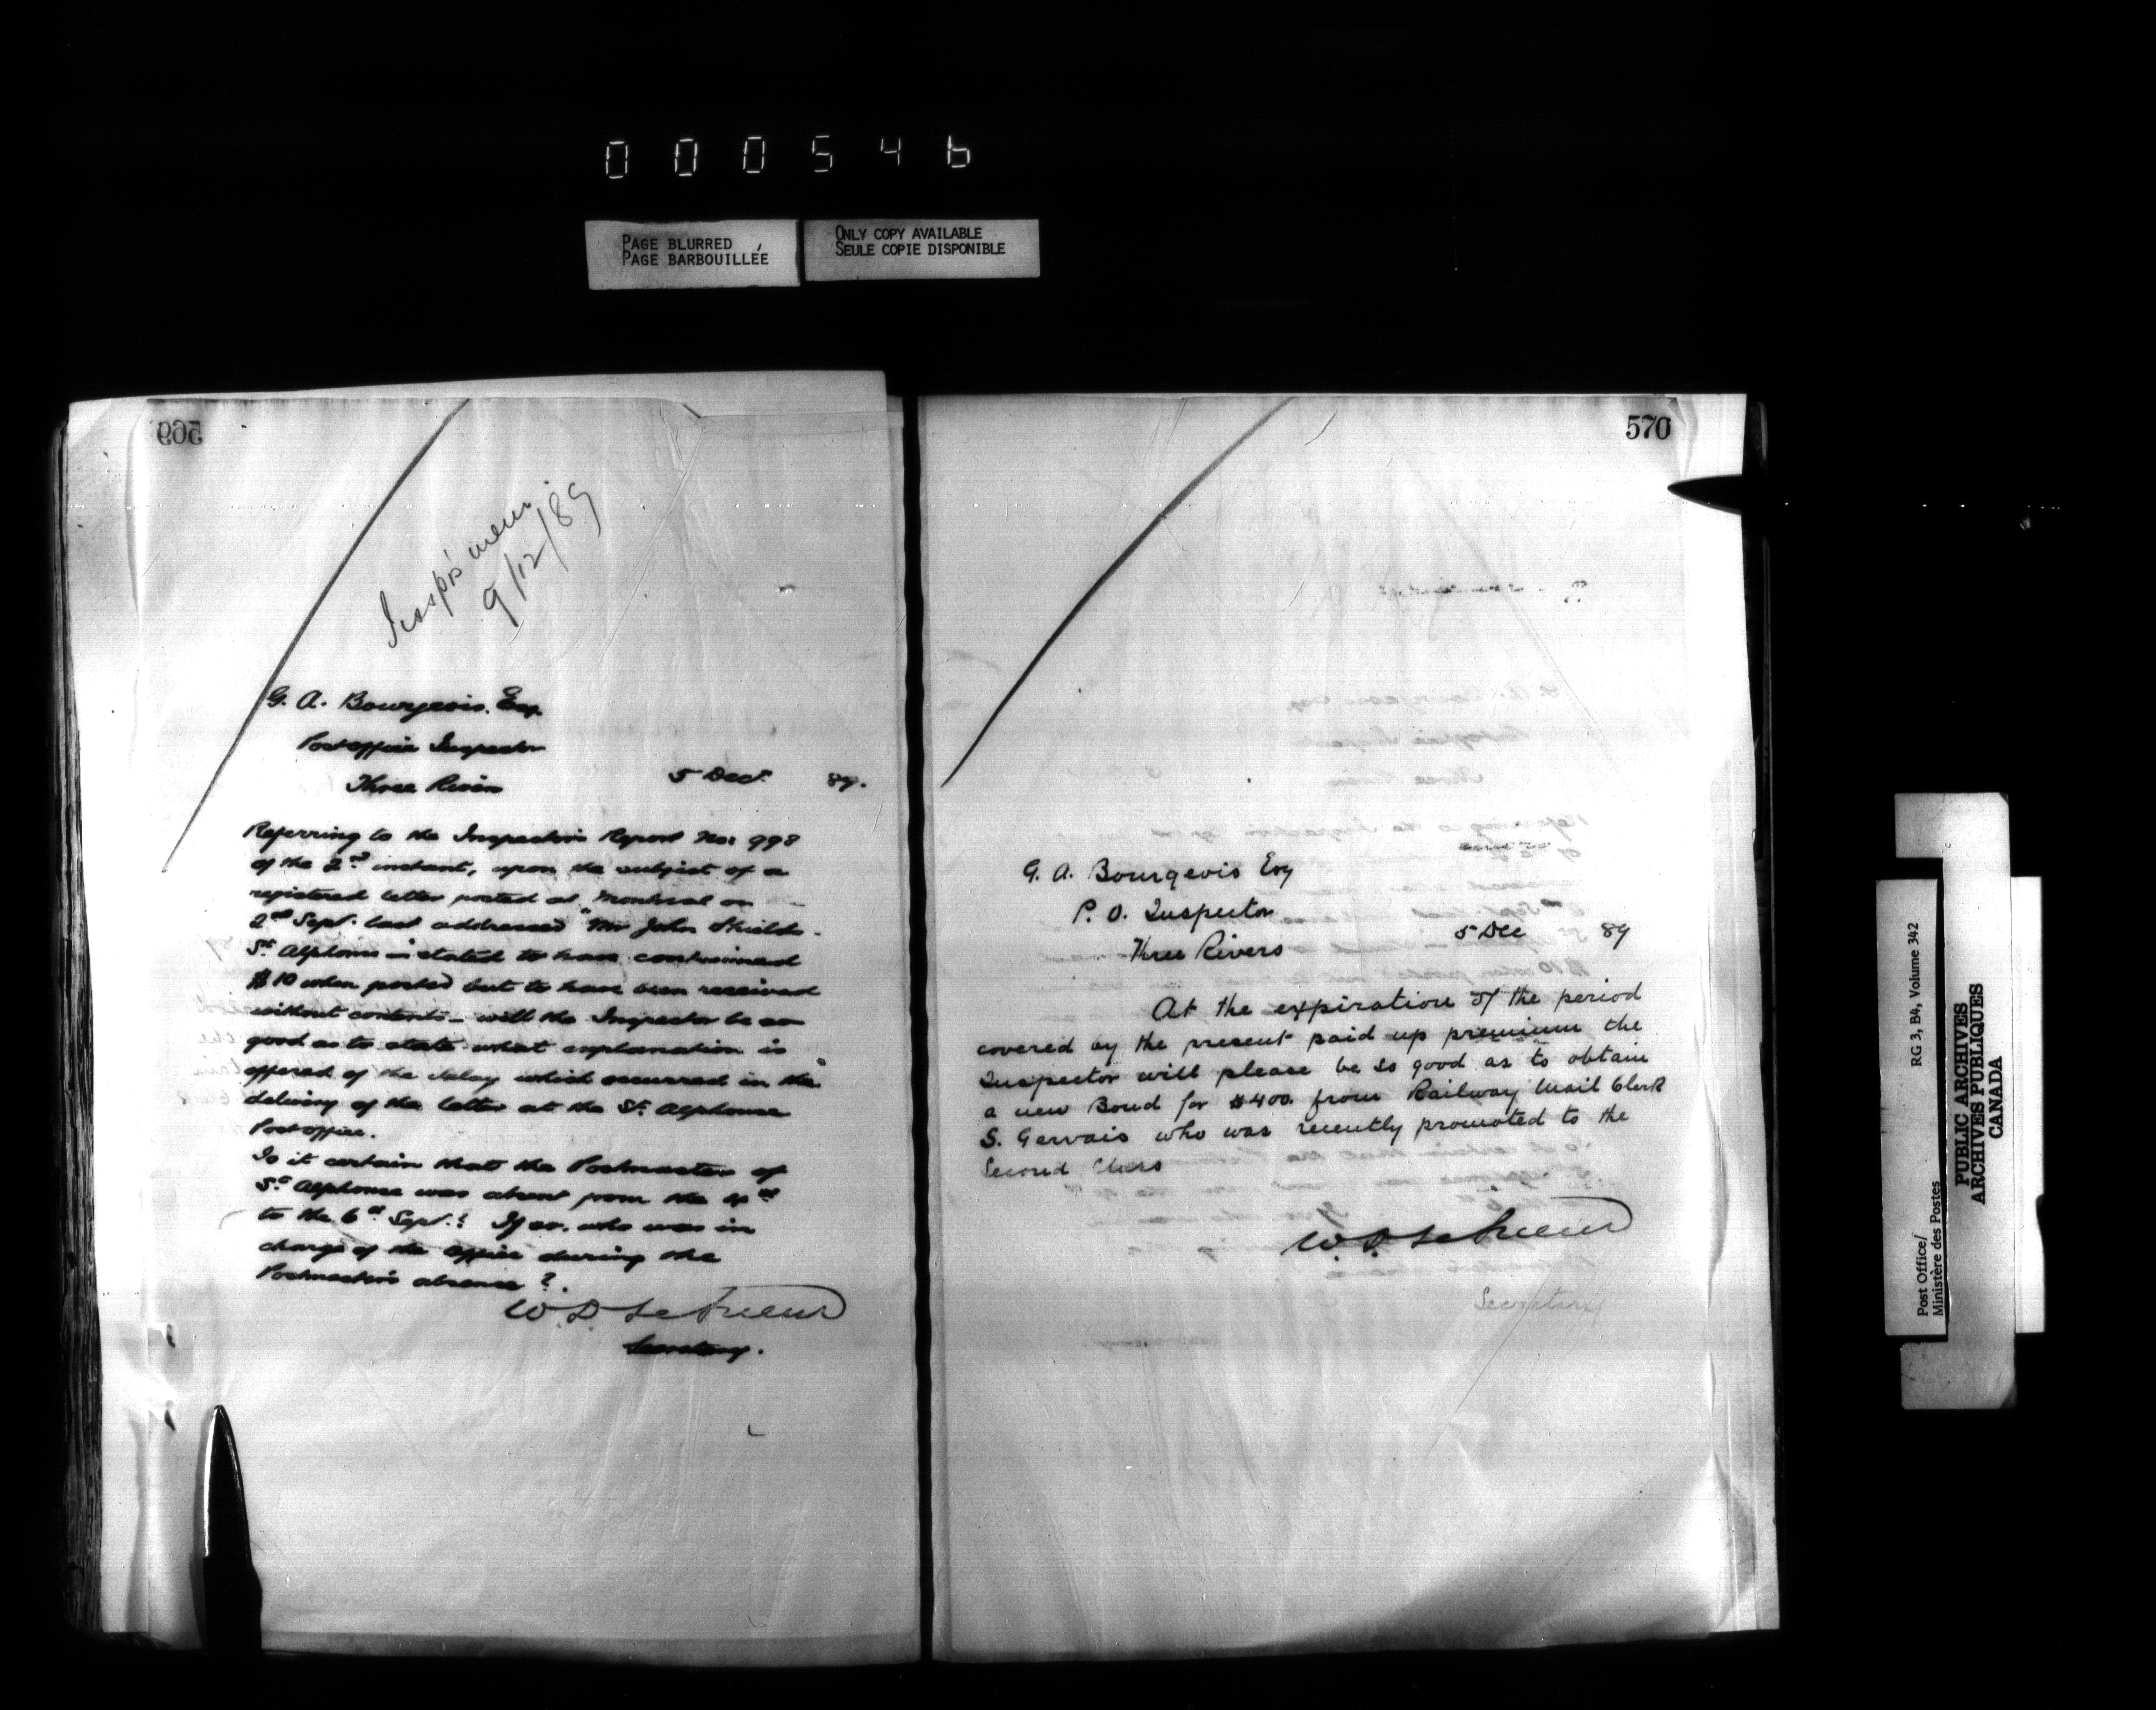 000546
PAGE BLURRED
PAGE BARBOUILLÉE
ONLY COPY AVAILABLE
SEULE COPIE DISPONIBLE
569
Insp's mem.
9/12/89
G. A. Bourgeois. Esq.
Post office Inspector
Three Rivers
5 Decr. 89.
Referring to the Inspector's Report No: 998
of the 2nd instant, upon the subject of a
registered letter posted at Montreal on
2nd Sept. last addressed "Mr John Shields
St Alphonse" stated to have contained
$10 when posted but to have been received
without contents - will the Inspector be so
good as to state what explanation is
offered of the delay which occurred in the
delivery of the letter at the St Alphonse
Post office.
Is it certain that the Postmaster of
St Alphonse was absent from the 4th
to the 6th Sept.? If so. who was in
charge of the office during the
Postmaster's absence?
W. D. LeSueur
Secretary.
570
G. A. Bourgeois Esq
P. O. Inspector
Three Rivers
5 Dec 89
At the expiration of the period
covered by the present paid up premium the
Inspector will please be so good as to obtain
a new Bond for $400. from Railway Mail Clerk
S. Gervais who was recently promoted to the
Second Class
W. D. LeSueur
Secretary
Post Office/
Ministère des Postes
RG 3, B4, Volume 342
PUBLIC ARCHIVES
ARCHIVES PUBLIQUES
CANADA